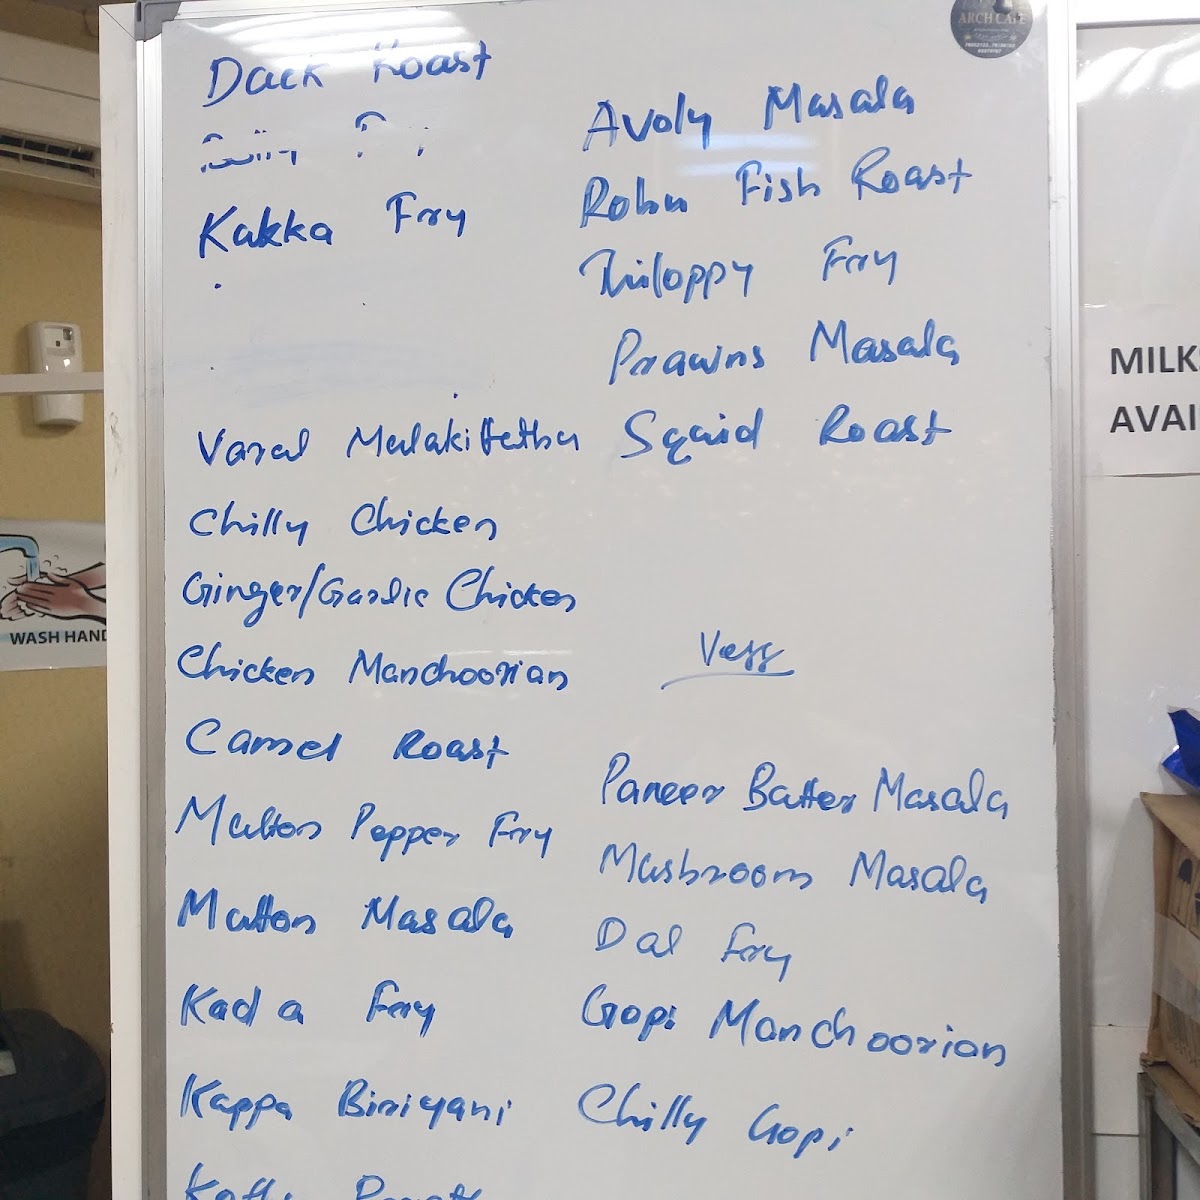 ARCH CAFE
Duck Roast
Kakka Fry
Varal Mulakittathu
Chilly Chicken
Ginger/Garlic Chicken
Chicken Manchoorian
Camel Roast
Mutton Pepper Fry
Mutton Masala
Kada Fry
Kappa Biriyani
Avoly Masala
Rohu Fish Roast
Thiloppy Fry
Prawns Masala
Squid Roast
Vegg
Paneer Butter Masala
Mushroom Masala
Dal Fry
Gopi Manchoorian
Chilly Gopi
WASH HAND
MILK
AVAI